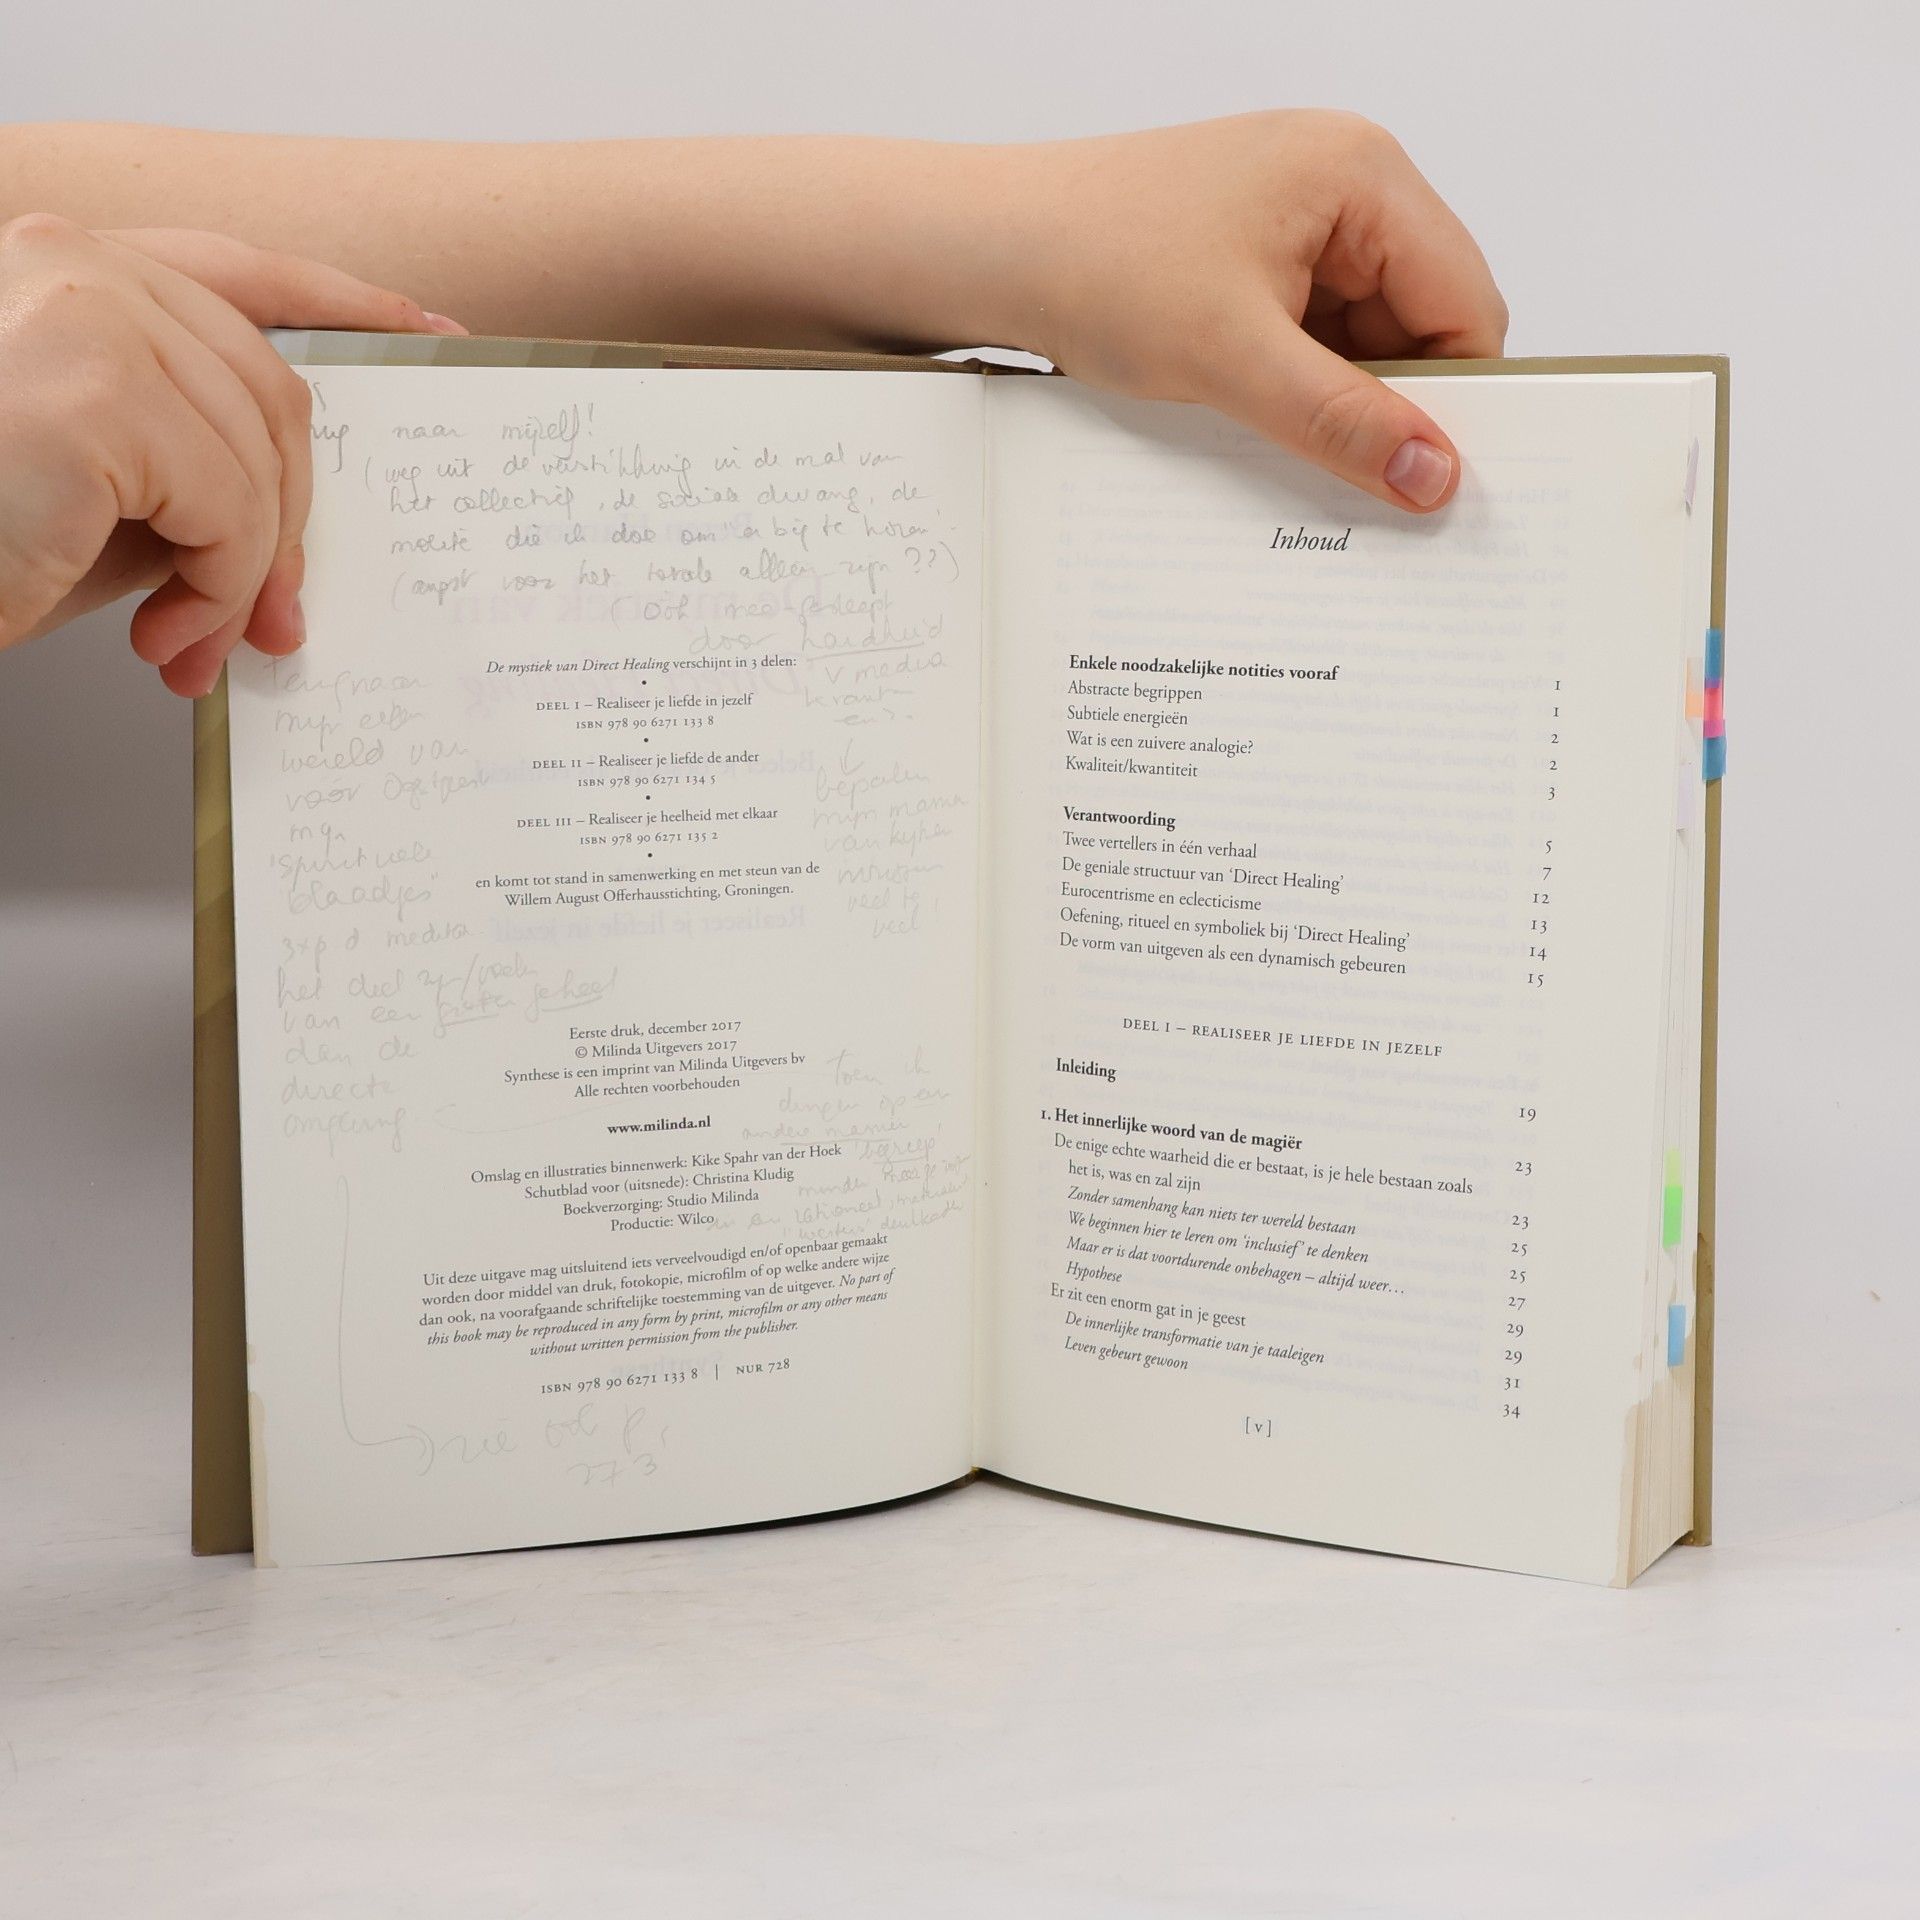 naar mijzelf!
(weg uit de verstikking in de mal van
het collectief, de sociale dwang, de
moeite die ik doe om 'er bij te horen'
(angst voor het totale alleen zijn ??)
(ook mee-gesleept
door hardheid
v media
kranten
Terug naar
mijn eigen
wereld van
vóór
mijn
"spirituele
blaadjes"
3xp d
het deel zijn/voelen
van een groter geheel
dan de
directe
omgeving
bepalen
mijn manier
van kijken
veel te
veel
De mystiek van Direct Healing verschijnt in 3 delen:
•
DEEL I – Realiseer je liefde in jezelf
ISBN 978 90 6271 133 8
•
DEEL II – Realiseer je liefde de ander
ISBN 978 90 6271 134 5
•
DEEL III – Realiseer je heelheid met elkaar
ISBN 978 90 6271 135 2
•
en komt tot stand in samenwerking en met steun van de
Willem August Offerhausstichting, Groningen.
Eerste druk, december 2017
© Milinda Uitgevers 2017
Synthese is een imprint van Milinda Uitgevers bv
Alle rechten voorbehouden
toen ik
dingen op een
andere manier
'begreep'
www.milinda.nl
Omslag en illustraties binnenwerk: Kike Spahr van der Hoek
Schutblad voor (uitsnede): Christina Kludig
Boekverzorging: Studio Milinda
Productie: Wilco
Uit deze uitgave mag uitsluitend iets verveelvoudigd en/of openbaar gemaakt
worden door middel van druk, fotokopie, microfilm of op welke andere wijze
dan ook, na voorafgaande schriftelijke toestemming van de uitgever. No part of
this book may be reproduced in any form by print, microfilm or any other means
without written permission from the publisher.
ISBN 978 90 6271 133 8 | NUR 728
zie ook p.
273
Inhoud
Enkele noodzakelijke notities vooraf 1
Abstracte begrippen 1
Subtiele energieën 2
Wat is een zuivere analogie? 2
Kwaliteit/kwantiteit 3
Verantwoording 5
Twee vertellers in één verhaal 7
De geniale structuur van 'Direct Healing' 12
Eurocentrisme en eclecticisme 13
Oefening, ritueel en symboliek bij 'Direct Healing' 14
De vorm van uitgeven als een dynamisch gebeuren 15
DEEL I – REALISEER JE LIEFDE IN JEZELF
Inleiding 19
1. Het innerlijke woord van de magiër 23
De enige echte waarheid die er bestaat, is je hele bestaan zoals
het is, was en zal zijn 23
Zonder samenhang kan niets ter wereld bestaan 25
We beginnen hier te leren om 'inclusief' te denken 25
Maar er is dat voortdurende onbehagen – altijd weer… 27
Hypothese 29
Er zit een enorm gat in je geest 29
De innerlijke transformatie van je taaleigen 31
Leven gebeurt gewoon 34
[ v ]